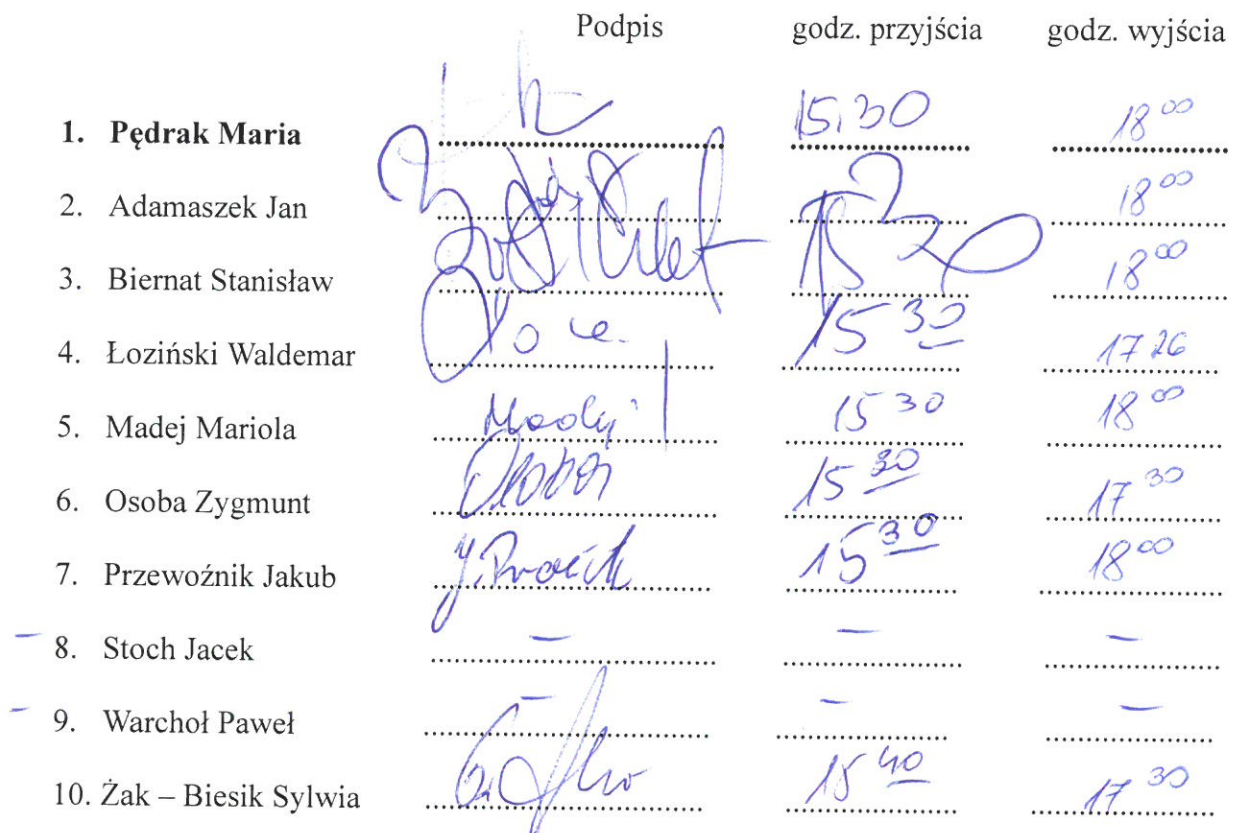 Podpis godz. przyjścia godz. wyjścia
1. Pędrak Maria 15.30 18 00
2. Adamaszek Jan 18 00
3. Biernat Stanisław 15 30 18 00
4. Łoziński Waldemar 15 30 17 26
5. Madej Mariola Madej 15 30 18 00
6. Osoba Zygmunt Osoba 15 30 17 30
7. Przewoźnik Jakub 15 30 18 00
– 8. Stoch Jacek – – –
– 9. Warchoł Paweł – – –
10. Żak – Biesik Sylwia 15 40 17 30